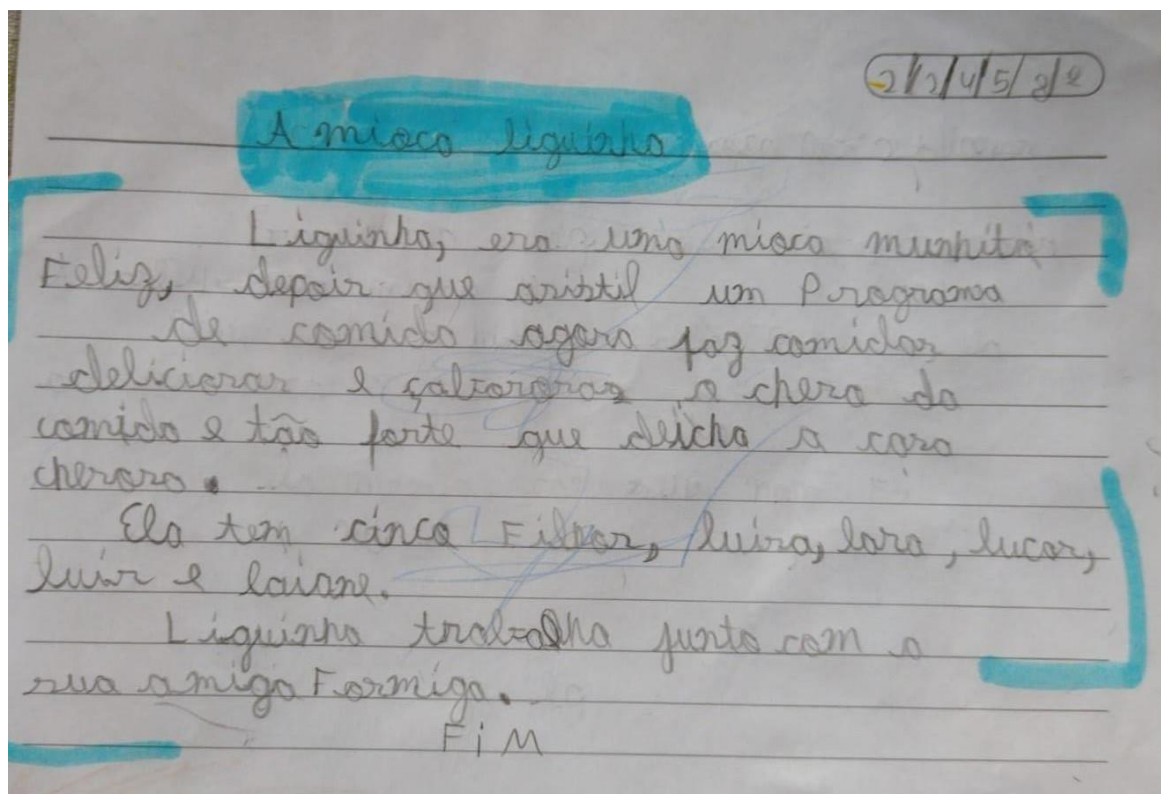 A mioca liguinha
Liguinha, era uma mioca munhita
Feliz, depois que asistil um Programa
de comida agora faz comidas
deliciosas e çaborosas o chero da
comida e tão forte que deicha a casa
cherosa.
Ela tem cinco Filhos, luisa, lara, lucas,
luis e laiane.
Liguinha trabalha junto com a
sua amiga Formiga.
FiM